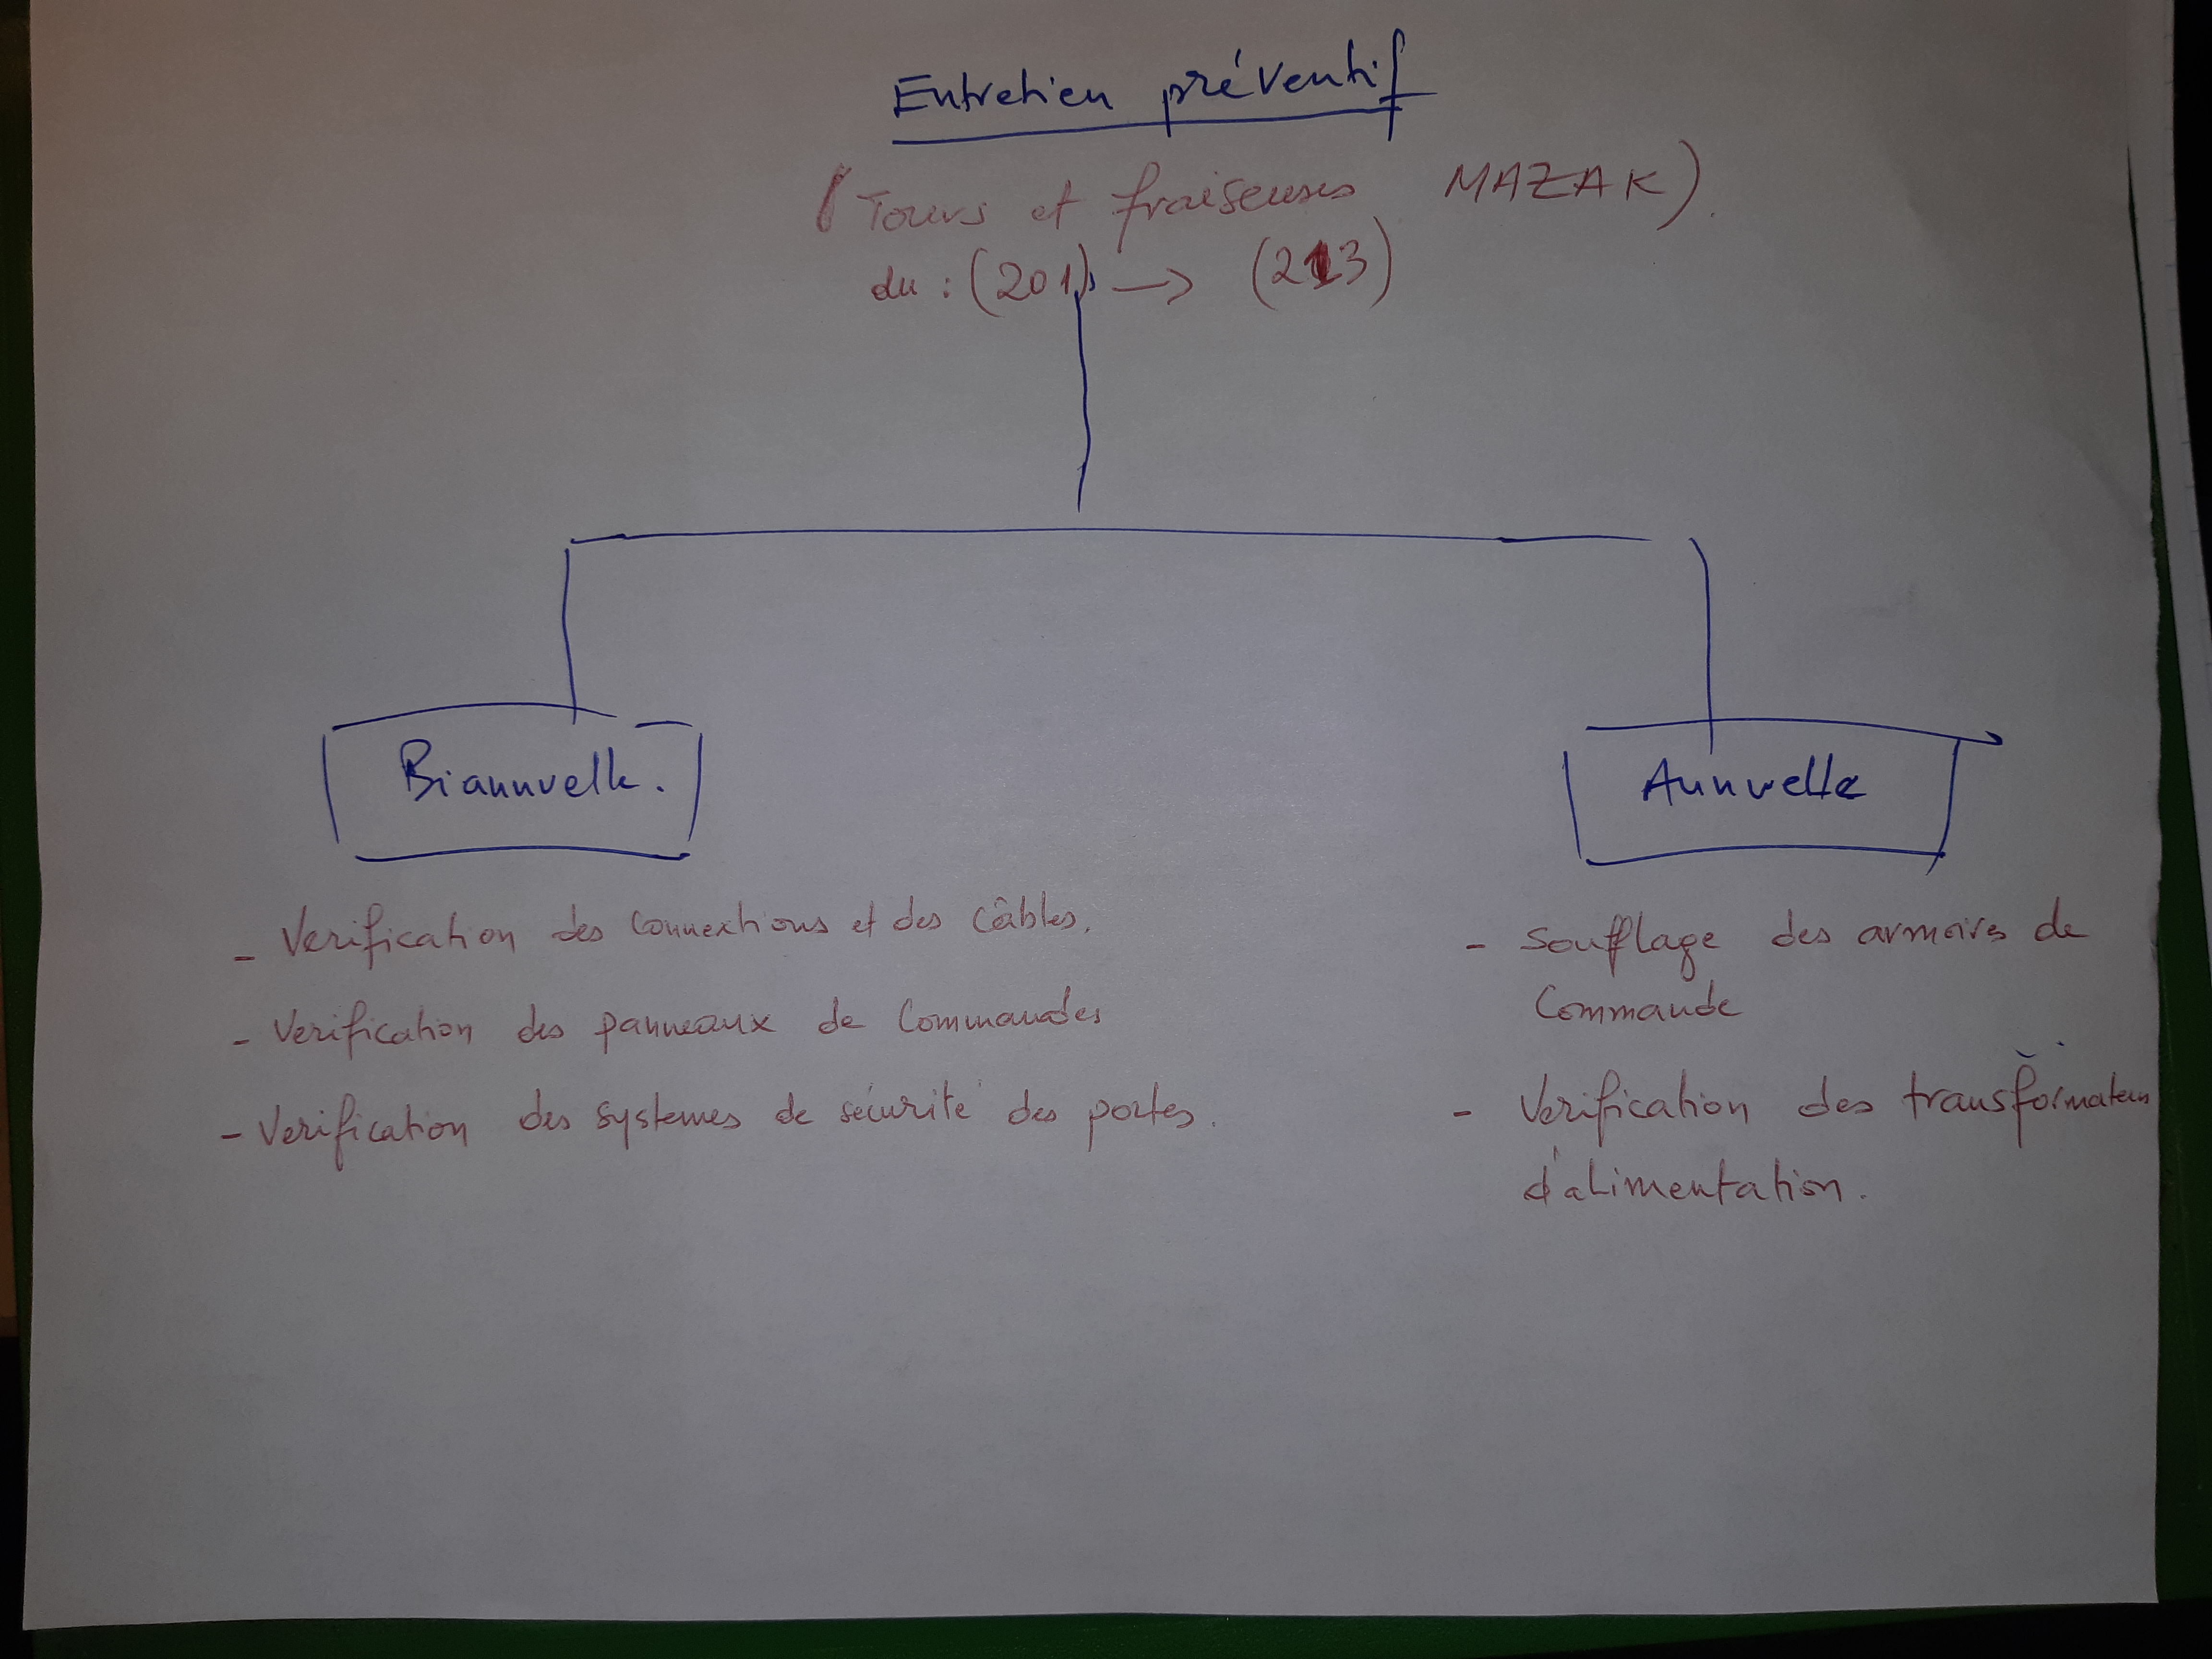 Entretien préventif
(Tours et fraiseuses MAZAK).
du : (201) → (213)
Biannuelle.
Annuelle
- Verification des connextions et des câbles.
- Verification des panneaux de Commandes
- Verification des systemes de sécurité des portes.
- Soufflage des armoires de
Commande
- Verification des transformateurs
d'alimentation.